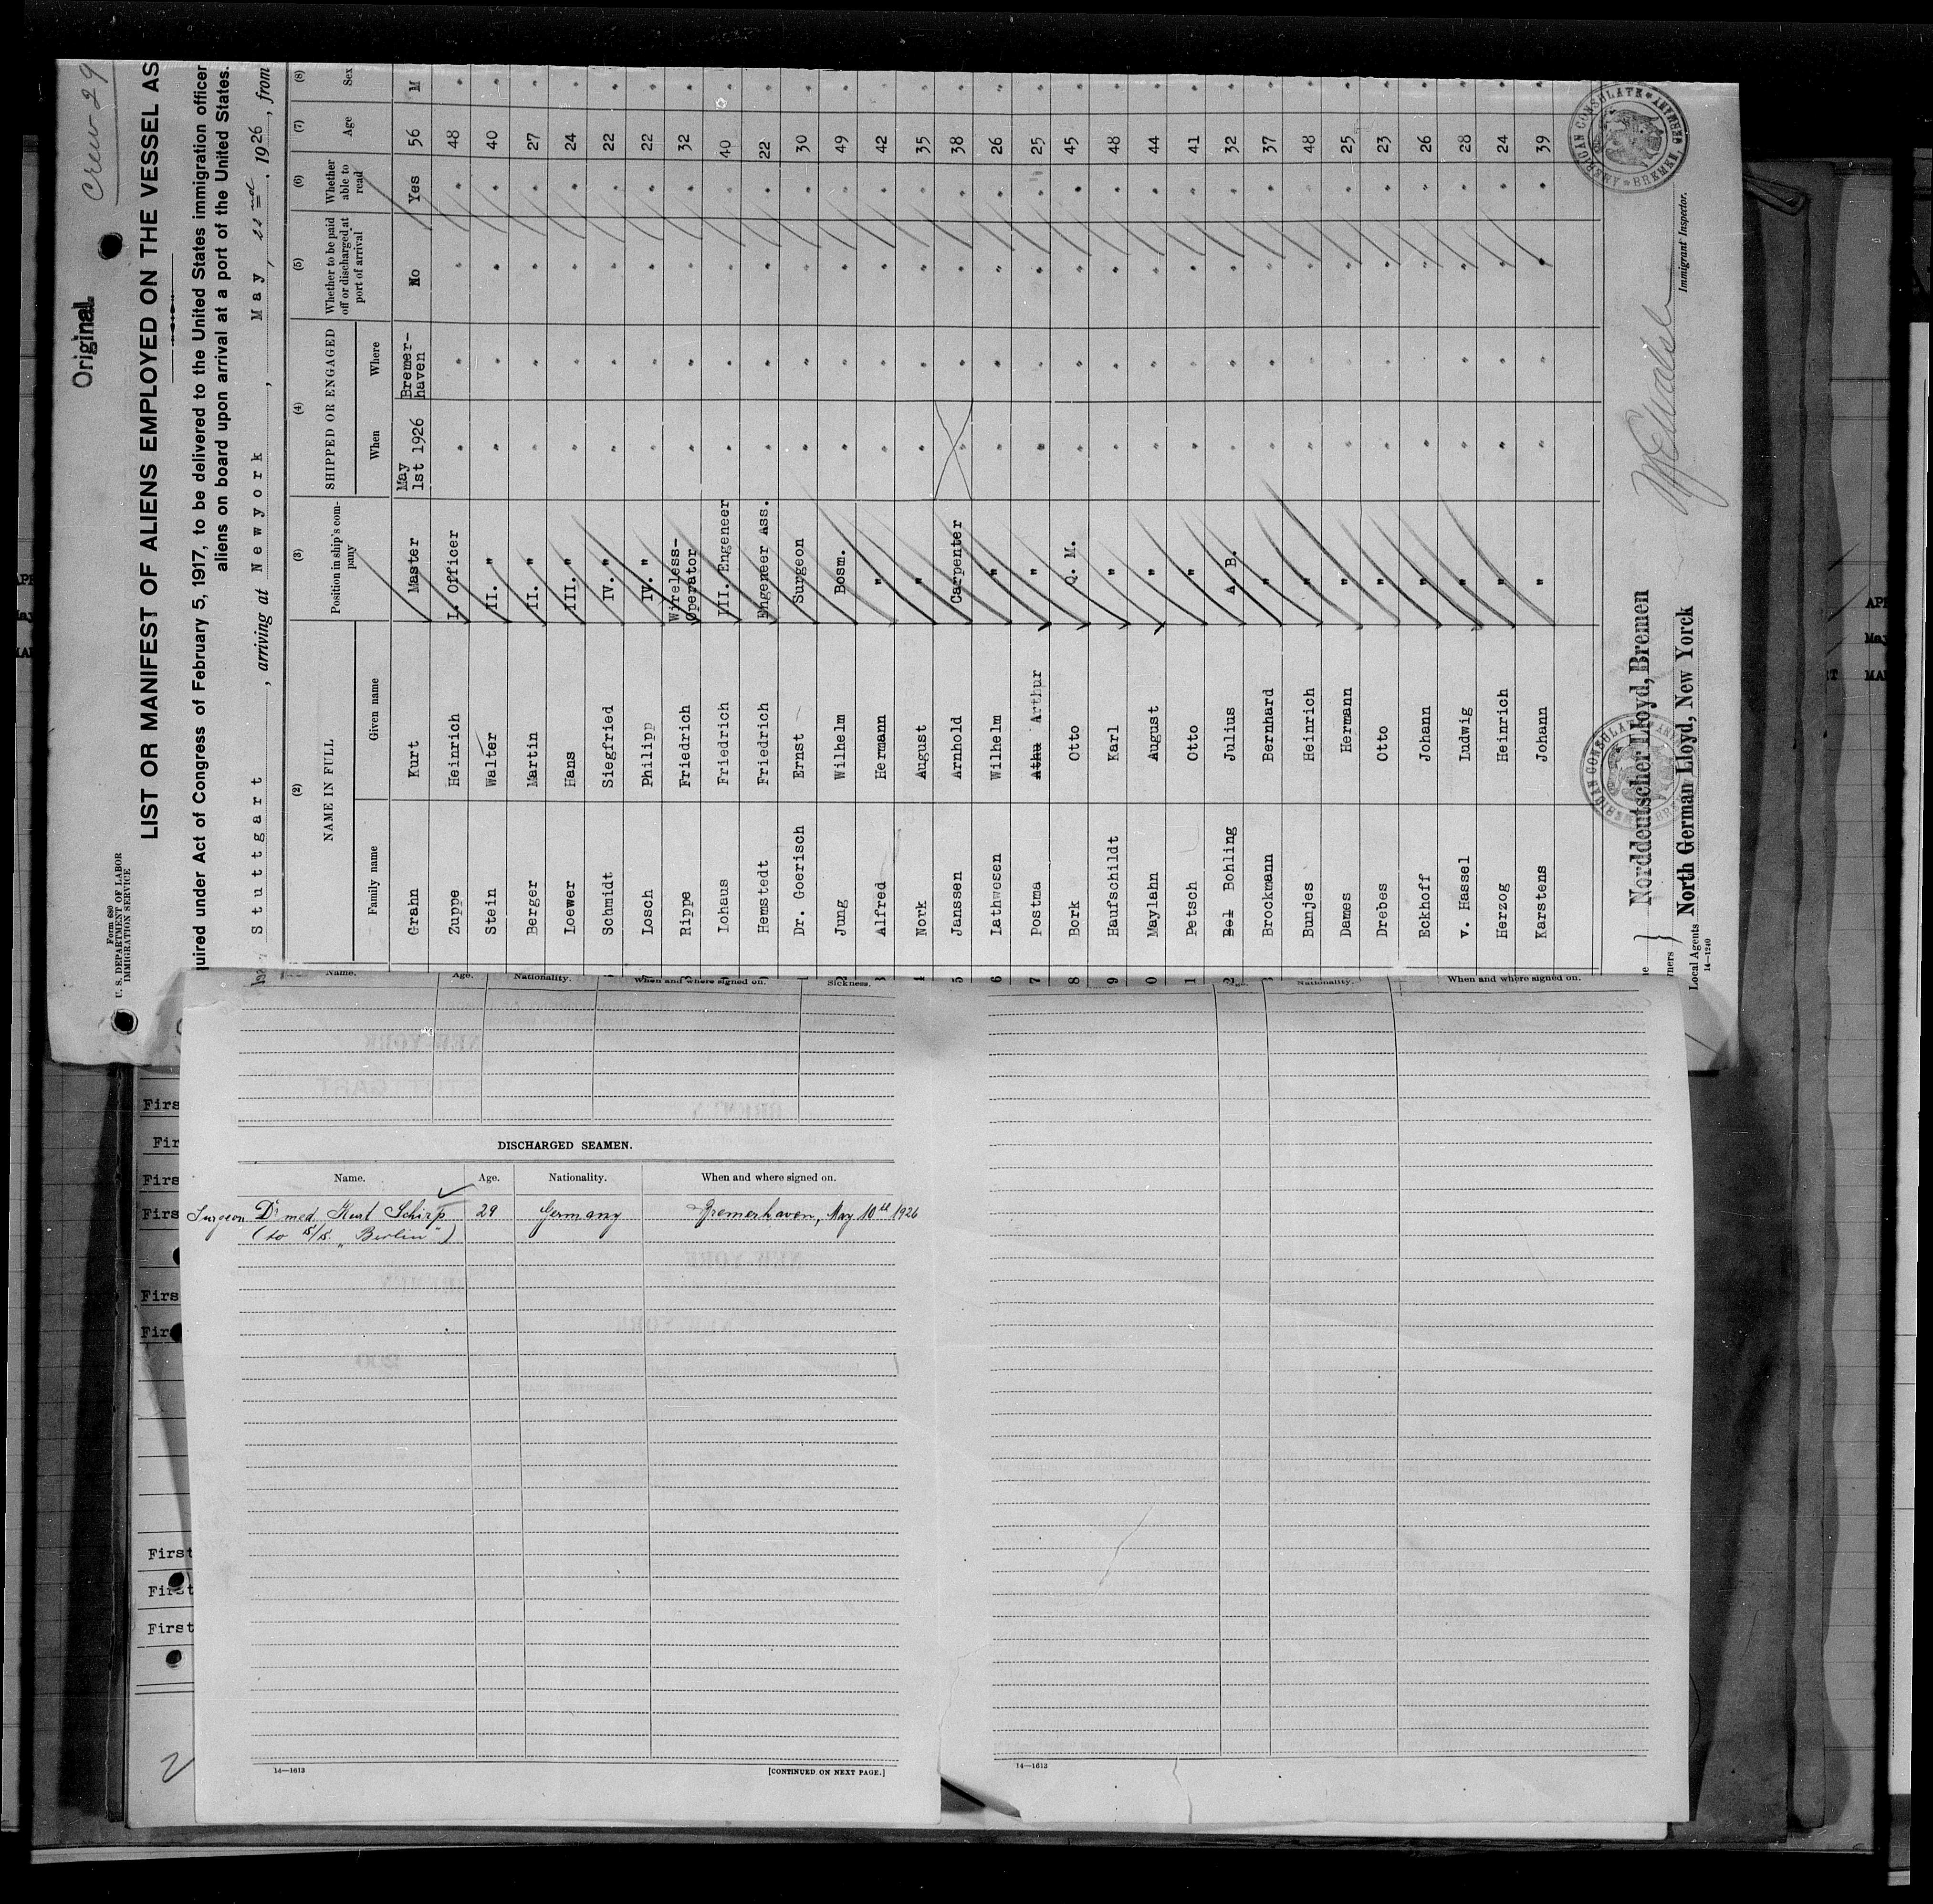 Original
Crew 29
Form 680
U. S. DEPARTMENT OF LABOR
IMMIGRATION SERVICE
LIST OR MANIFEST OF ALIENS EMPLOYED ON THE VESSEL AS
quired under Act of Congress of February 5, 1917, to be delivered to the United States immigration officer
aliens on board upon arrival at a port of the United States.
Stuttgart, arriving at Newyork, May, 1926, from
(2) (3) (4) (5) (6) (7) (8)
NAME IN FULL Position in ship's company SHIPPED OR ENGAGED Whether to be paid off or discharged at port of arrival Whether able to read Age Sex
Family name Given name When Where
Grahn Kurt Master May 1st 1926 Bremerhaven No Yes 56 M
Zuppe Heinrich I. Officer " " " " 48 "
Stein Walter II. " " " " " 40 "
Berger Martin II. " " " " " 27 "
Loewer Hans III. " " " " " 24 "
Schmidt Siegfried IV. " " " " " 22 "
Losch Philipp IV. " " " " " 22 "
Rippe Friedrich Wireless-Operator " " " " 32 "
Lohaus Friedrich III. Engeneer " " " " 40 "
Hemstedt Friedrich Engeneer Ass. " " " " 22 "
Dr. Goerisch Ernst Surgeon " " " " 30 "
Jung Wilhelm Bosm. " " " " 49 "
Alfred Hermann " " " " " 42 "
Nork August " " " " " 35 "
5 Janssen Arnhold Carpenter " " " " 38 "
6 Lathwesen Wilhelm " " " " " 26 "
7 Postma Athu Arthur " " " " " 25 "
8 Bork Otto Q. M. " " " " 45 "
9 Haufschildt Karl " " " " " 48 "
0 Maylahn August " " " " " 44 "
1 Petsch Otto " " " " " 41 "
2 Bel Bohling Julius A. B. " " " " 32 "
Brockmann Bernhard " " " " " 37 "
Bunjes Heinrich " " " " " 48 "
Dames Hermann " " " " " 25 "
Drebes Otto " " " " " 23 "
Eckhoff Johann " " " " " 26 "
v. Hassel Ludwig " " " " " 28 "
Herzog Heinrich " " " " " 24 "
Karstens Johann " " " " " 39 "
Norddeutscher Lloyd, Bremen
North German Lloyd, New Yorck
Local Agents
14—1240
Immigrant Inspector.
AMERICAN CONSULATE BREMEN, GERMANY
AMERICAN CONSULATE
Name. Age. Nationality. When and where signed on. Sickness.
Nationality. When and where signed on.
DISCHARGED SEAMEN.
Name. Age. Nationality. When and where signed on.
Surgeon Dr med Kurt Schirp 29 Germany Bremerhaven, May 10th 1926
(to S/S. „Berlin")
14—1613 [CONTINUED ON NEXT PAGE.]
14—1613
First
First
First
First
First
First
First
First
First